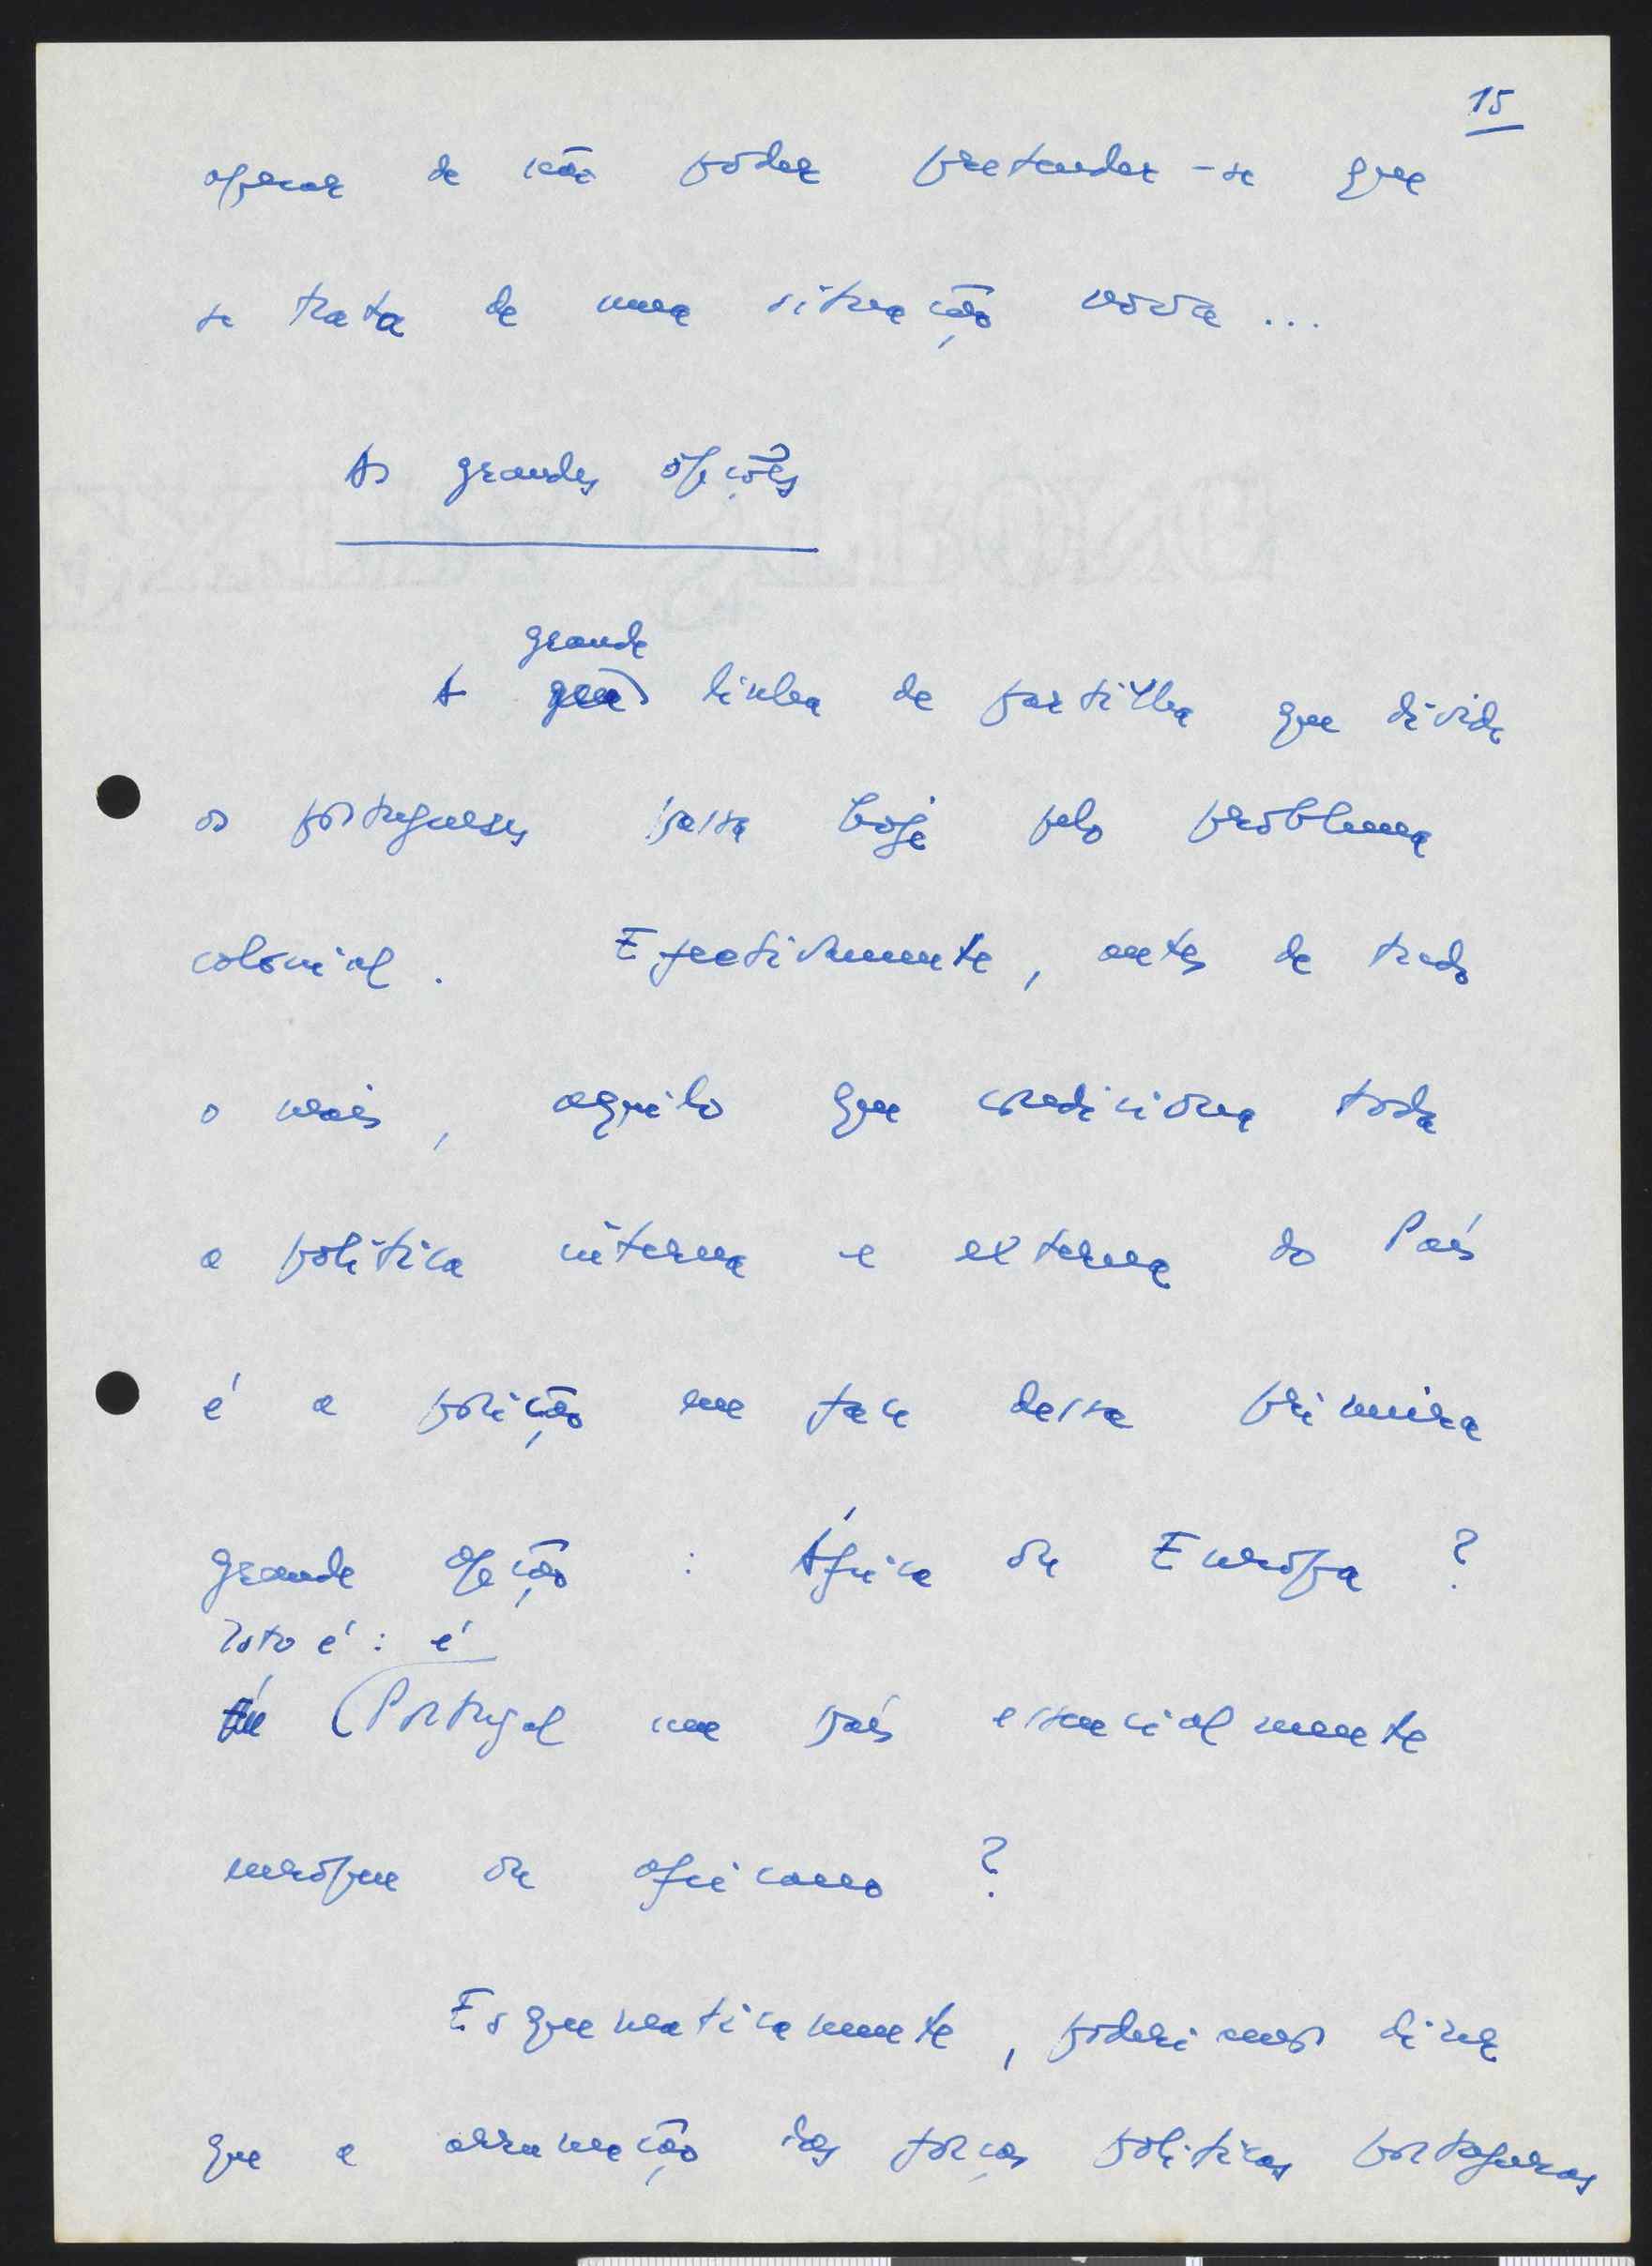 15
apesar de não poder pretender-se que
se trata de uma situação nova ...
As grandes opções
grande
A linha de partilha que divide
os portugueses passa hoje pelo problema
colonial. Efectivamente, antes de tudo
o mais, aquilo que condiciona toda
a política interna e externa do País
é a posição em face dessa primeira
grande opção : África ou Europa ?
Isto é : é
Portugal um país essencialmente
europeu ou africano ?
Esquematicamente, poderíamos dizer
que a arrumação das forças políticas portuguesas